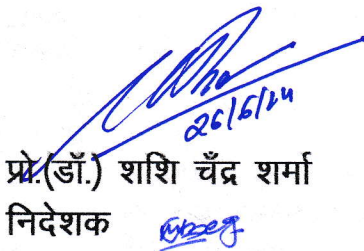 26/6/24
प्रो.(डॉ.) शशि चँद्र शर्मा
निदेशक